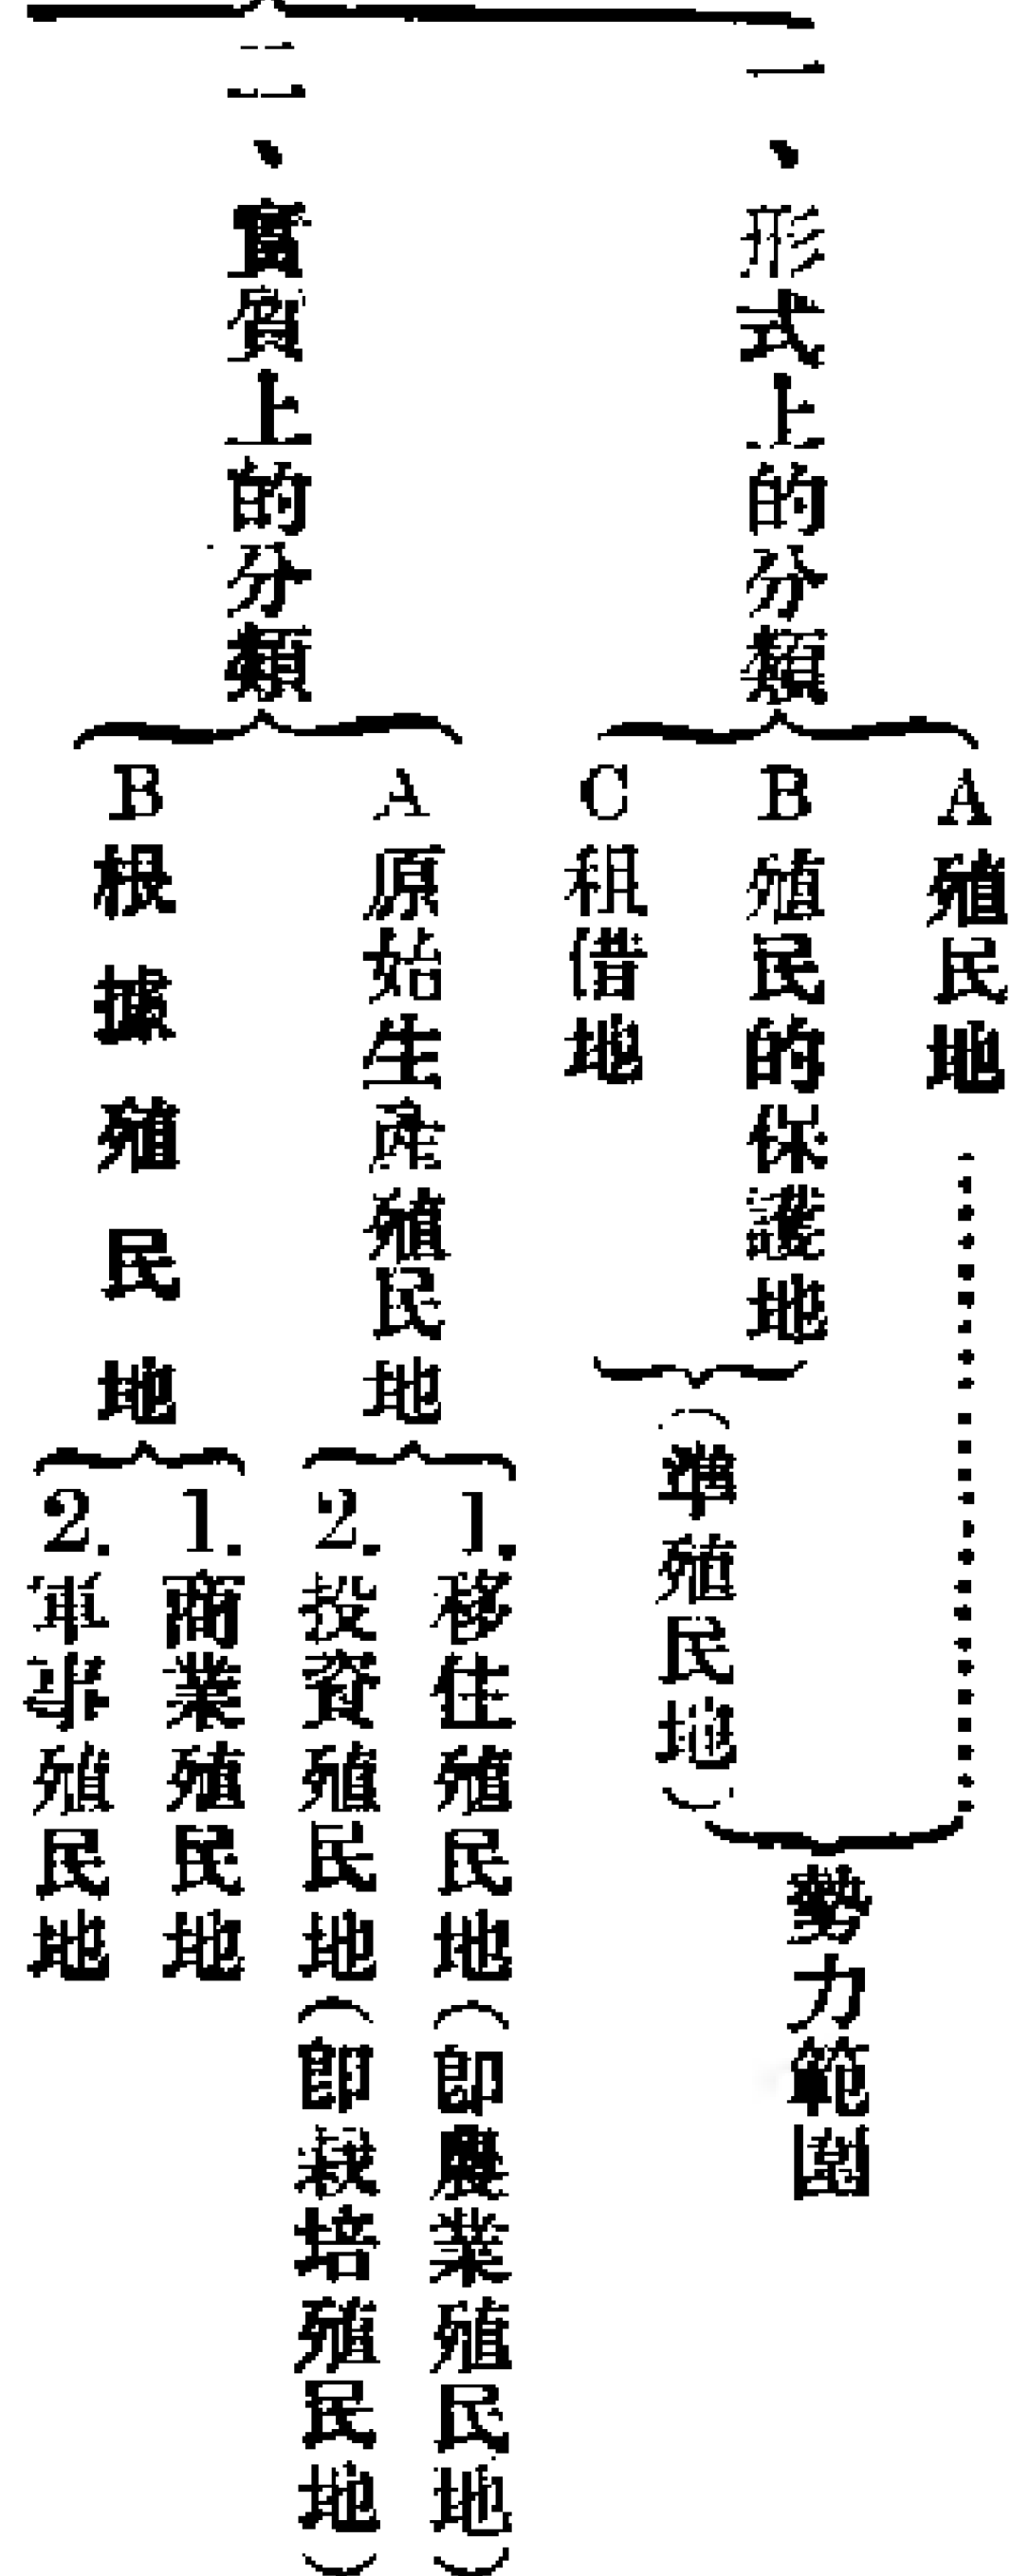 一、形式上的分類
A殖民地
B殖民的保護地
C租借地
（準殖民地）
勢力範圍
二、實質上的分類
A原始生産殖民地
1.移住殖民地（即農業殖民地）
2.投資殖民地（即栽培殖民地）
B根據殖民地
1.商業殖民地
2.軍事殖民地